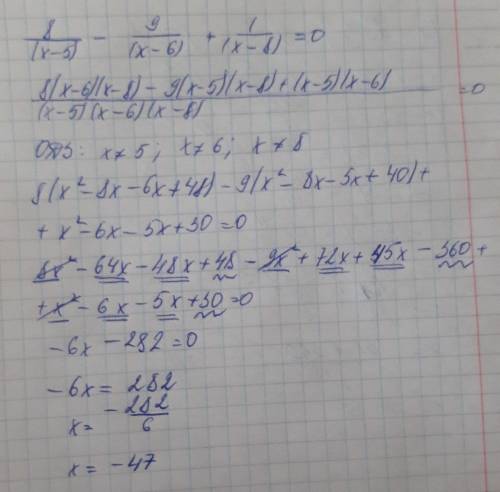 8/(x-5) - 9/(x-6) + 1/(x-8) = 0
8(x-6)(x-8) - 9(x-5)(x-8) + (x-5)(x-6) / (x-5)(x-6)(x-8) = 0
ОДЗ: x≠5; x≠6; x≠8
8(x²-8x-6x+48) - 9(x²-8x-5x+40) +
+ x²-6x-5x+30=0
8x²-64x-48x+48-9x²+72x+45x-360+
+x²-6x-5x+30=0
-6x-282=0
-6x=282
x= -282/6
x= -47